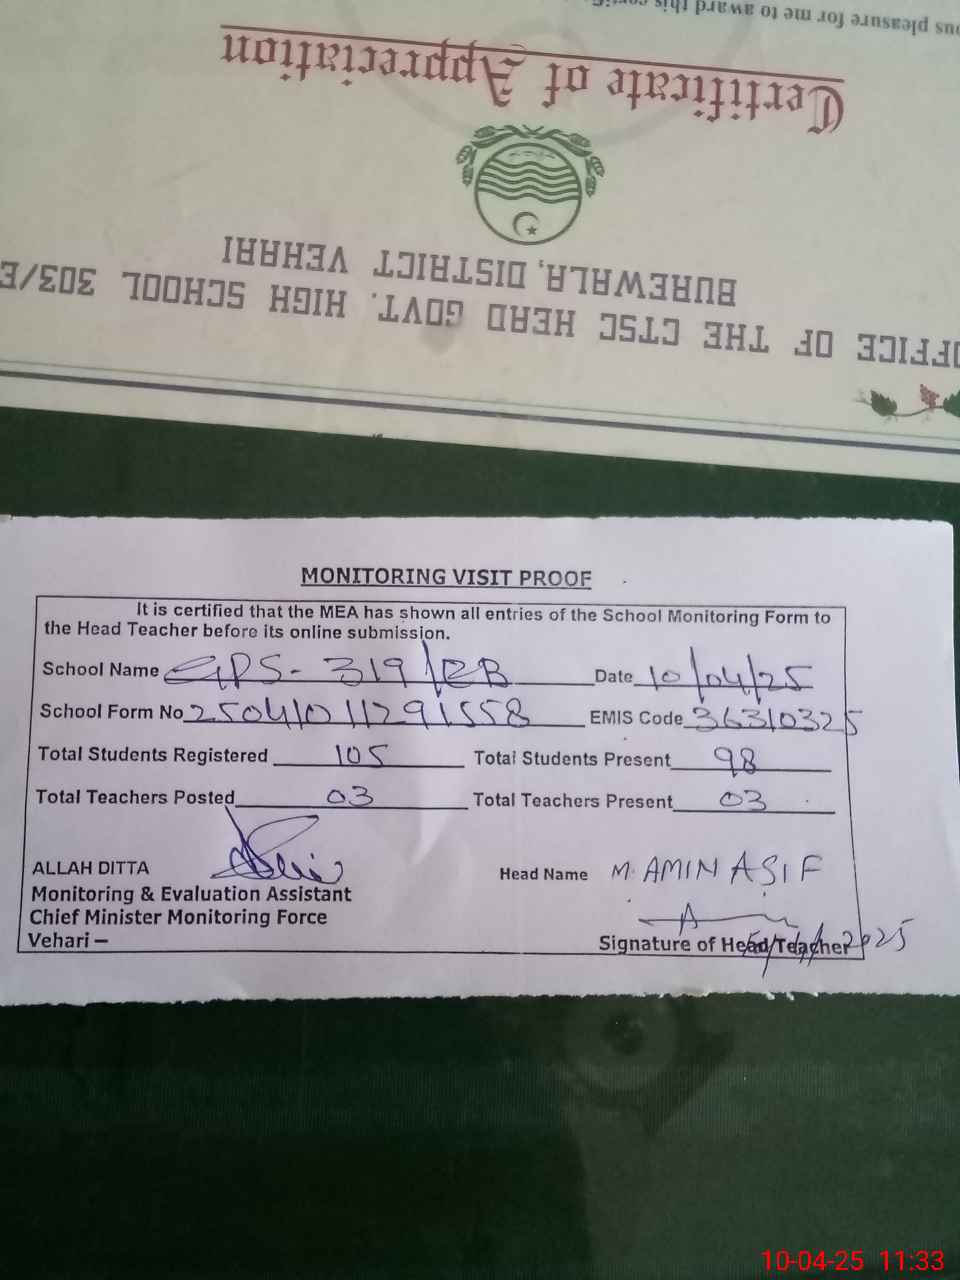 OFFICE OF THE CTSC HEAD GOVT. HIGH SCHOOL 303/E
BUREWALA, DISTRICT VEHARI
Certificate of Appreciation
pleasure for me to award this
MONITORING VISIT PROOF
It is certified that the MEA has shown all entries of the School Monitoring Form to
the Head Teacher before its online submission.
School Name GPS- 319/EB Date 10/04/25
School Form No 25041011291558 EMIS Code 36310325
Total Students Registered 105 Total Students Present 98
Total Teachers Posted 03 Total Teachers Present 03
ALLAH DITTA Head Name M. AMIN ASIF
Monitoring & Evaluation Assistant
Chief Minister Monitoring Force
Vehari – Signature of Head Teacher 2025
10-04-25 11:33